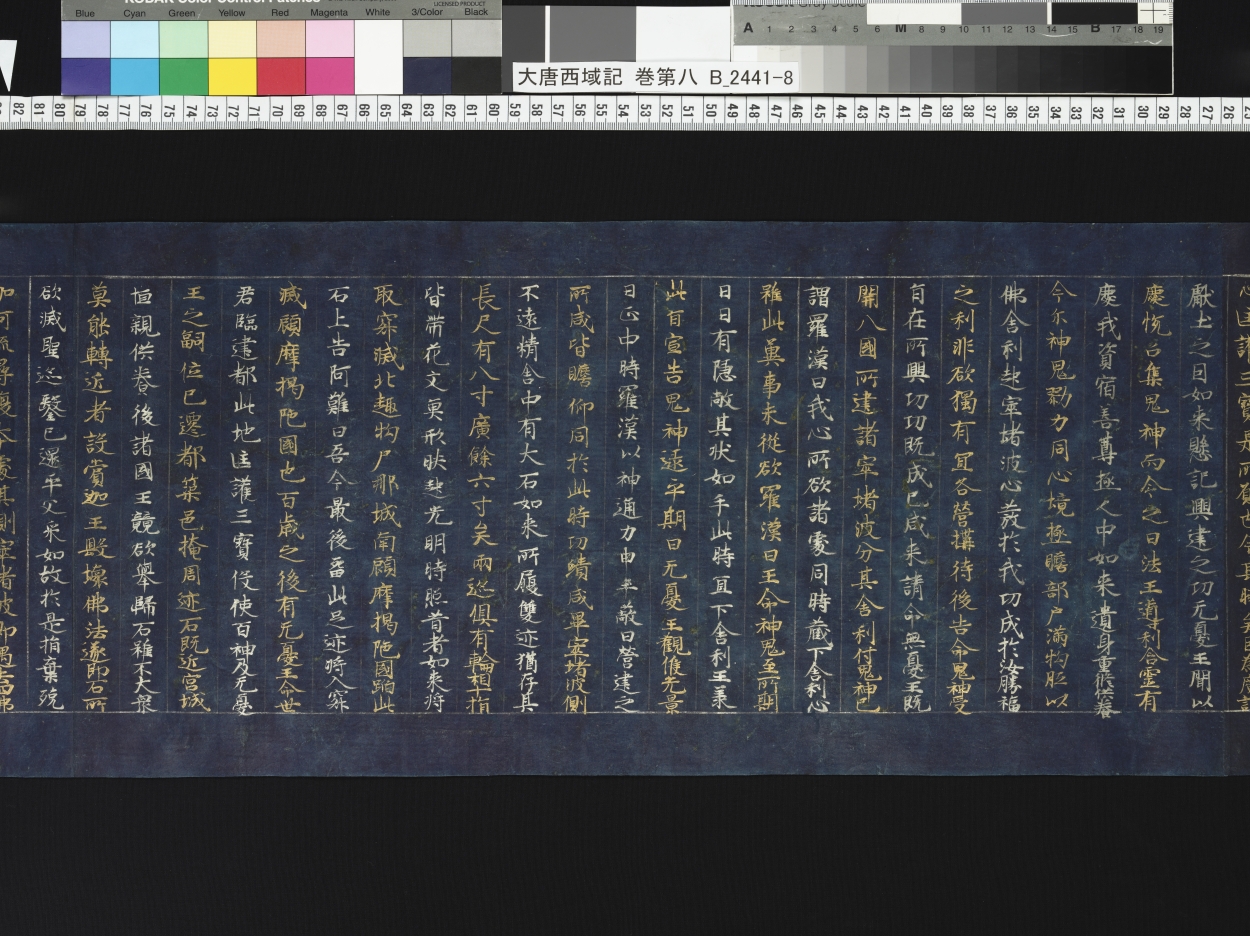 KODAK Color Control Patches
LICENSED PRODUCT
Blue Cyan Green Yellow Red Magenta White 3/Color Black
A 1 2 3 4 5 6 M 8 9 10 11 12 13 14 15 B 17 18 19
大唐西域記 巻第八 B_2441-8
82 81 80 79 78 77 76 75 74 73 72 71 70 69 68 67 66 65 64 63 62 61 60 59 58 57 56 55 54 53 52 51 50 49 48 47 46 45 44 43 42 41 40 39 38 37 36 35 34 33 32 31 30 29 28 27 26
厭土之日如来懸記興建之功无憂王聞以
慶悦召集鬼神而令之曰法王導利含靈有
慶我資宿善尊極人中如来遺身重脩供養
今尓神鬼勠力同心境極贍部户満拘胝以
佛舎利起窣堵波心發於我功成於汝勝福
之利非欲獨有冝各營搆待後告命鬼神受
開八國所建諸窣堵波分其舎利付鬼神已
旨在所興功功既成已咸来請命無憂王既
謂羅漢曰我心所欲諸處同時藏下舎利心
雖此兾事未從欲羅漢曰王命神鬼至所期
日日有隱蔽其状如手此時冝下舎利王承
此旨宣告鬼神逮乎期日无憂王觀候光景
日正中時羅漢以神通力申手蔽日營建之
所咸皆瞻仰同於此時功績咸畢窣堵波側
不遠精舎中有大石如来所履雙迹猶存其
長尺有八寸廣餘六寸矣兩迹俱有輪相十指
皆帯花文𩵋形映起光明時照昔者如来将
取寂滅北趣拘尸那城南顧摩揭陁國蹈此
石上告阿難曰吾今最後留此足迹将入寂
滅顧摩揭陁國也百歳之後有无憂王命世
君臨建都此地匡護三寳役使百神及无憂
王之嗣位已遷都築邑掩周迹石既近宮城
恒親供養後諸國王競欲舉歸石雖不大衆
莫能轉近者設賞迦王毀壊佛法遂即石所
欲滅聖迹鑿已還平文采如故於是捐棄殑